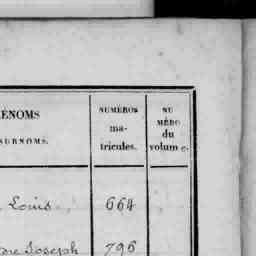 ÉNOMS
SURNOMS.
NUMÉROS
ma-
tricules.
NU
MÉRO
du
volum e.
Louis 664
Joseph 796